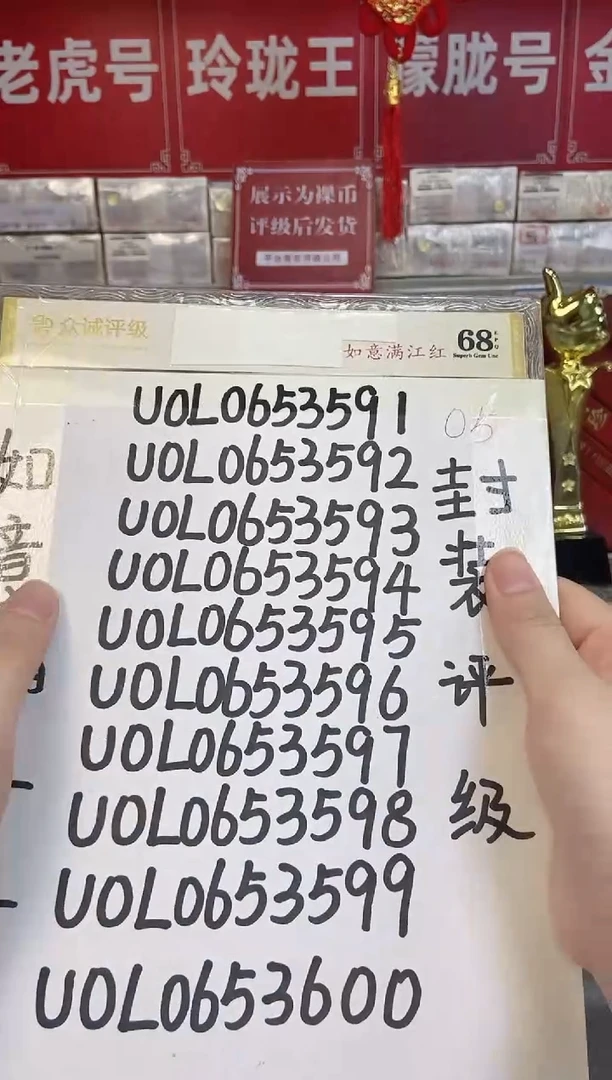 老虎号 玲珑王 朦胧号 金
展示为裸币
评级后发货
众诚评级
如意满江红
68 EPQ
Superb Gem Unc
05
如意
封装评级
UOL0653591
UOL0653592
UOL0653593
UOL0653594
UOL0653595
UOL0653596
UOL0653597
UOL0653598
UOL0653599
UOL0653600